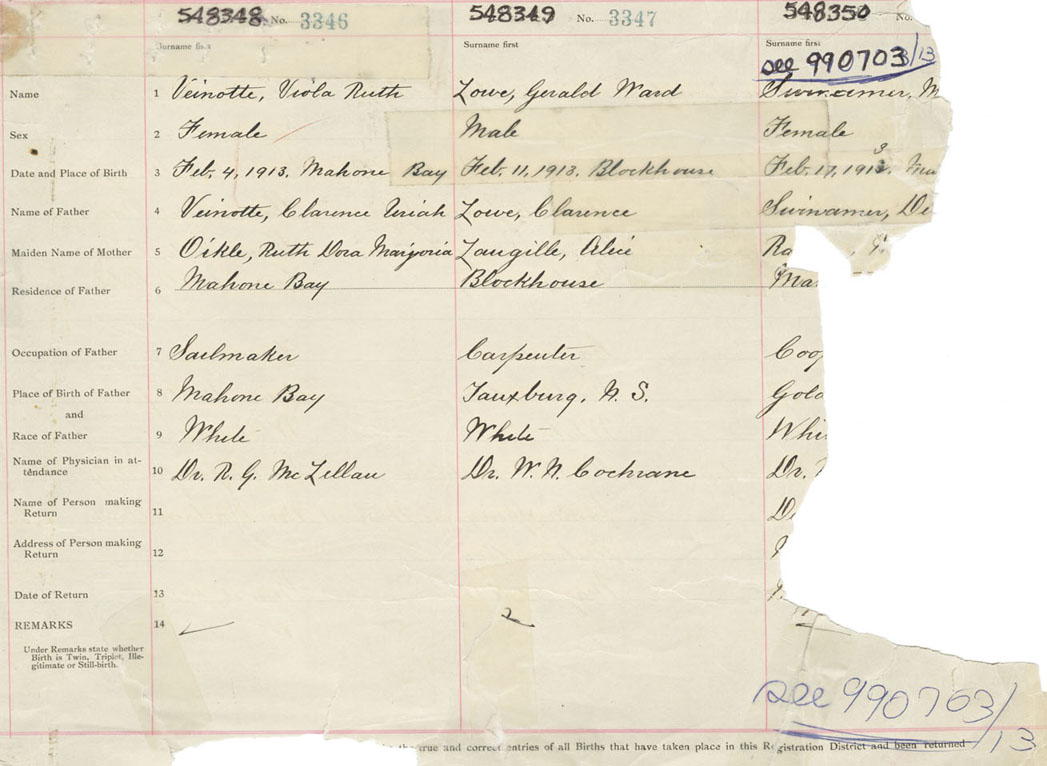 548348 No. 3346 548349 No. 3347 548350 No.
Surname first Surname first Surname first
see 990703/13
Name 1 Veinotte, Viola Ruth Lowe, Gerald Ward Swinamer, M
Sex 2 Female Male Female
Date and Place of Birth 3 Feb. 4, 1913. Mahone Bay Feb. 11, 1913. Blockhouse Feb. 17, 1913.
Name of Father 4 Veinotte, Clarence Uriah Lowe, Clarence Swinamer, De
Maiden Name of Mother 5 Oikle, Ruth Dora Marjoria Langille, Alice Ra
Residence of Father 6 Mahone Bay Blockhouse Ma
Occupation of Father 7 Sailmaker Carpenter Coop
Place of Birth of Father 8 Mahone Bay Fauxburg, N. S. Gold
and
Race of Father 9 White White Whi
Name of Physician in at-
tendance 10 Dr. R. G. McLellan Dr. W. N. Cochrane Dr.
Name of Person making
Return 11 D
Address of Person making
Return 12
Date of Return 13
REMARKS 14
Under Remarks state whether
Birth is Twin, Triplet, Ille-
gitimate or Still-birth.
see 990703/13
the true and correct entries of all Births that have taken place in this Registration District and been returned